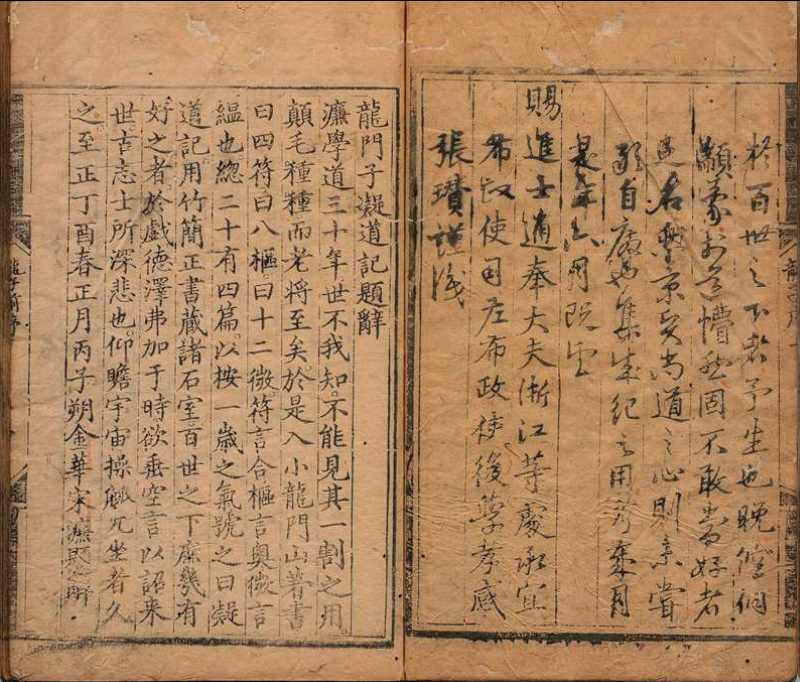 於百世之下者予生也晚倥侗
顓蒙於道懵然固不敢嘗好者
君子景賢尚道之心則素嘗
自集紀之用月
是年六月既望
賜進士通奉大夫浙江等處承宣
布政使司左布政使後學孝感
張瓚謹識
龍門子凝道記題辭
濂學道三十年世不我知不能見其一割之用
顛毛種種而老將至矣於是入小龍門山著書
曰四符曰八樞曰十二微符言合樞言奧微言
縕也總二十有四篇以按一歲之氣號之曰凝
道記用竹簡正書藏諸石室百世之下庶幾有
好之者於戲德澤弗加于時欲垂空言以詔來
世古志士所深悲也仰瞻宇宙操觚兀坐者久
之至正丁酉春正月丙子朔金華宋濂題